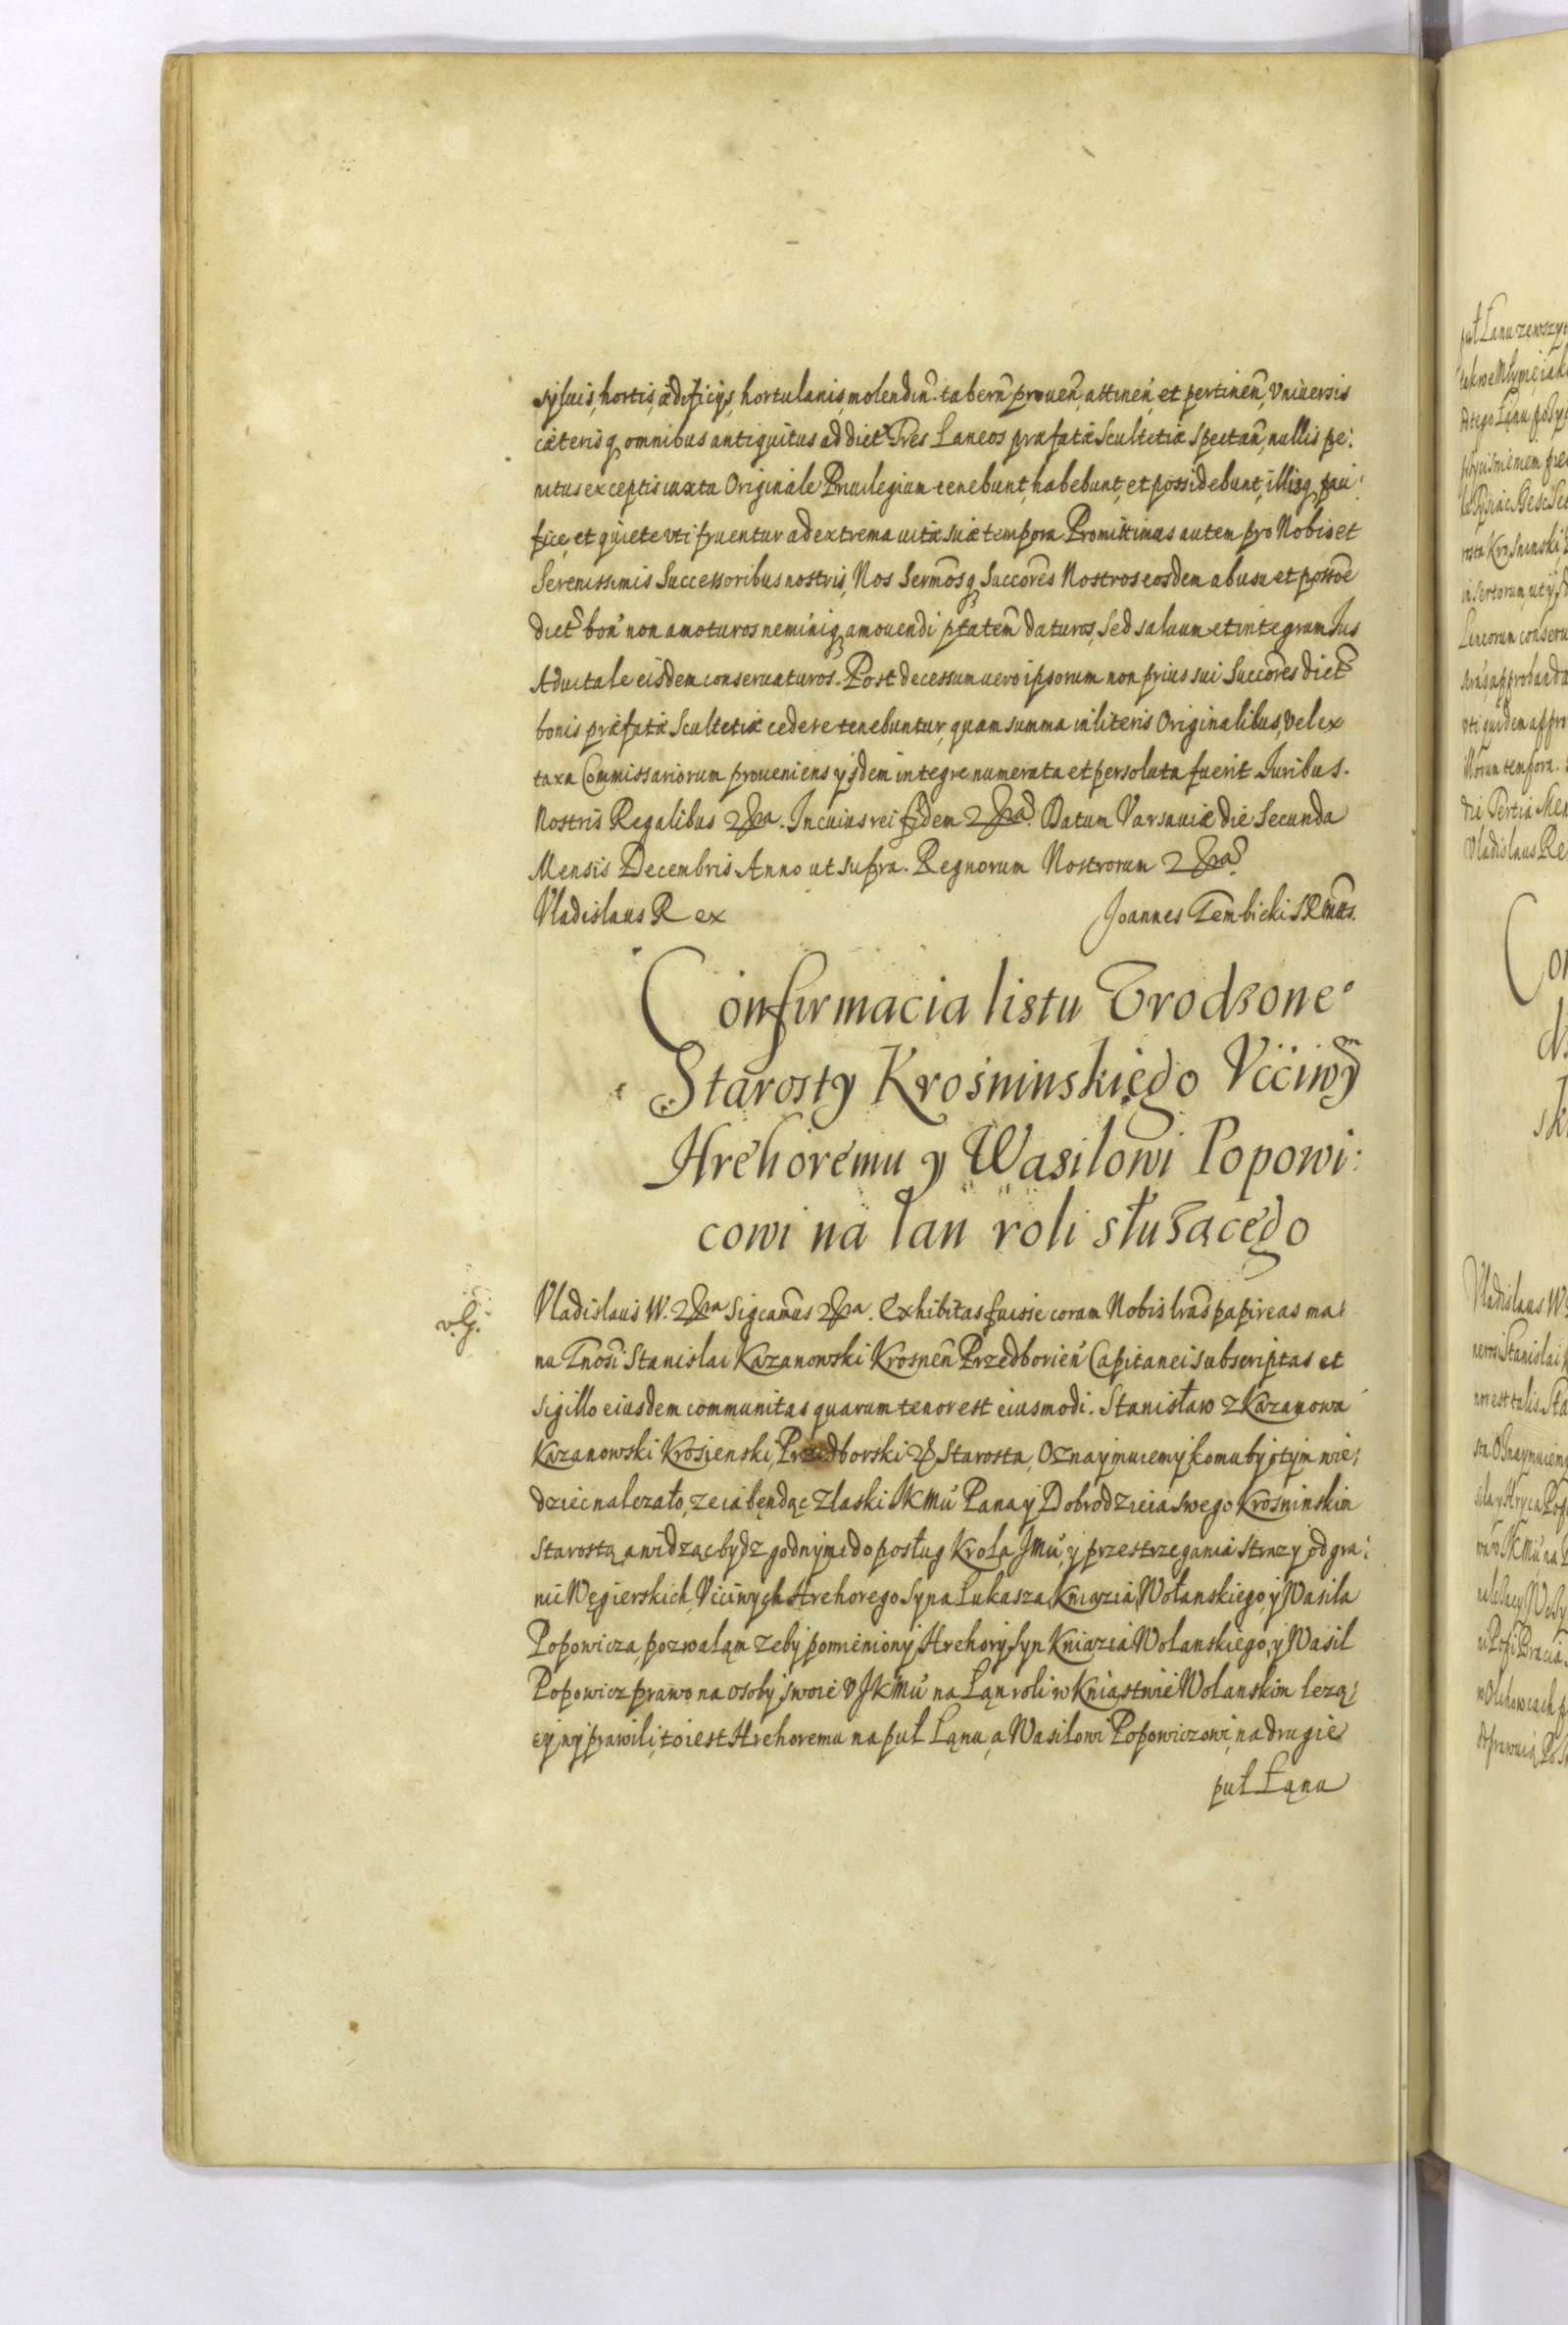 syluis, hortis, ædificijs, hortulanis, molendiñ. taberñ prouen, attineń, et pertineñ, Vniuersis
cæterisq omnibus antiquitus ad dict Tres Laneos præfatæ Scultetiæ Spectañ, nullis pe:
nitus exceptis iuxta Originale Priuilegium tenebunt, habebunt, et possidebunt, illisq paci:
fice, et quiete vti fruentur ad extrema uitæ suæ tempora. Promittimus autem pro Nobis et
Serenissimis Successoribus nostris, Nos Sermosq Succores Nostros eosdem ab usu et possoe
dict boń non amoturos neminiq amouendi ptatem daturos, Sed saluum et integrum Ius
Aduitale eisdem conseruaturos. Post decessum uero ipsorum non prius sui Succores dict
bonis præfatæ Scultetiæ cedere tenebuntur, quam summa in literis Originalibus, Vel ex
taxa Commissariorum proueniens ijsdem integre numerata et persoluta fuerit Iuribus.
Nostris Regalibus &ra. In cuius rei fidem &ra. Datum Varsauiæ die Secunda
Mensis Decembris Anno ut supra. Regnorum Nostrorum &ra.
Vladislaus Rex Joannes Gembicki S R Mttis.
Confirmacia listu Urodzone°
Starosty Krośninskiego Vćciwÿ
Hrehoremu y Wasilowi Popowi:
cowi na łan roli słuzącego
Vladislaus IV. &ra Sigcamus &ra. Exhibitas fuisse coram Nobis lras papireas ma:
v.G.
nu Gnosi Stanislai Kazanowski Krosneñ Przedborień Capitanei subscriptas et
sigillo eiusdem communitas quarum tenor est eiusmodi. Stanisław z Kazanowa
Kazanowski Krosienski, Przedborski & Starosta, Oznaymuiemy komu by o tym wie:
dziec nalezało, ze ia będąc z łaski JKMći Pana y Dobrodzieia swego Krosninskim
Starostą a widząc bydz godnymi do posług Krola JMći, y przestrzegania strazy od gra:
nic Węgierskich, Vćciwych Hrehorego Syna Łukasza, Kniazia, Wołanskiego, y Wasila
Popowicza, pozwalam zeby pomieniony Hrehory Syn Kniazia Wołanskiego, y Wasil
Popowicz prawo na osoby swoie v JKMći na Łąn roli w Kniąstwie Wolanskim lezą:
cy wyprawili, to iest Hrehoremu na puł Łąnu, a Wasilowi Popowiczowi, na drugie
puł Łąnu